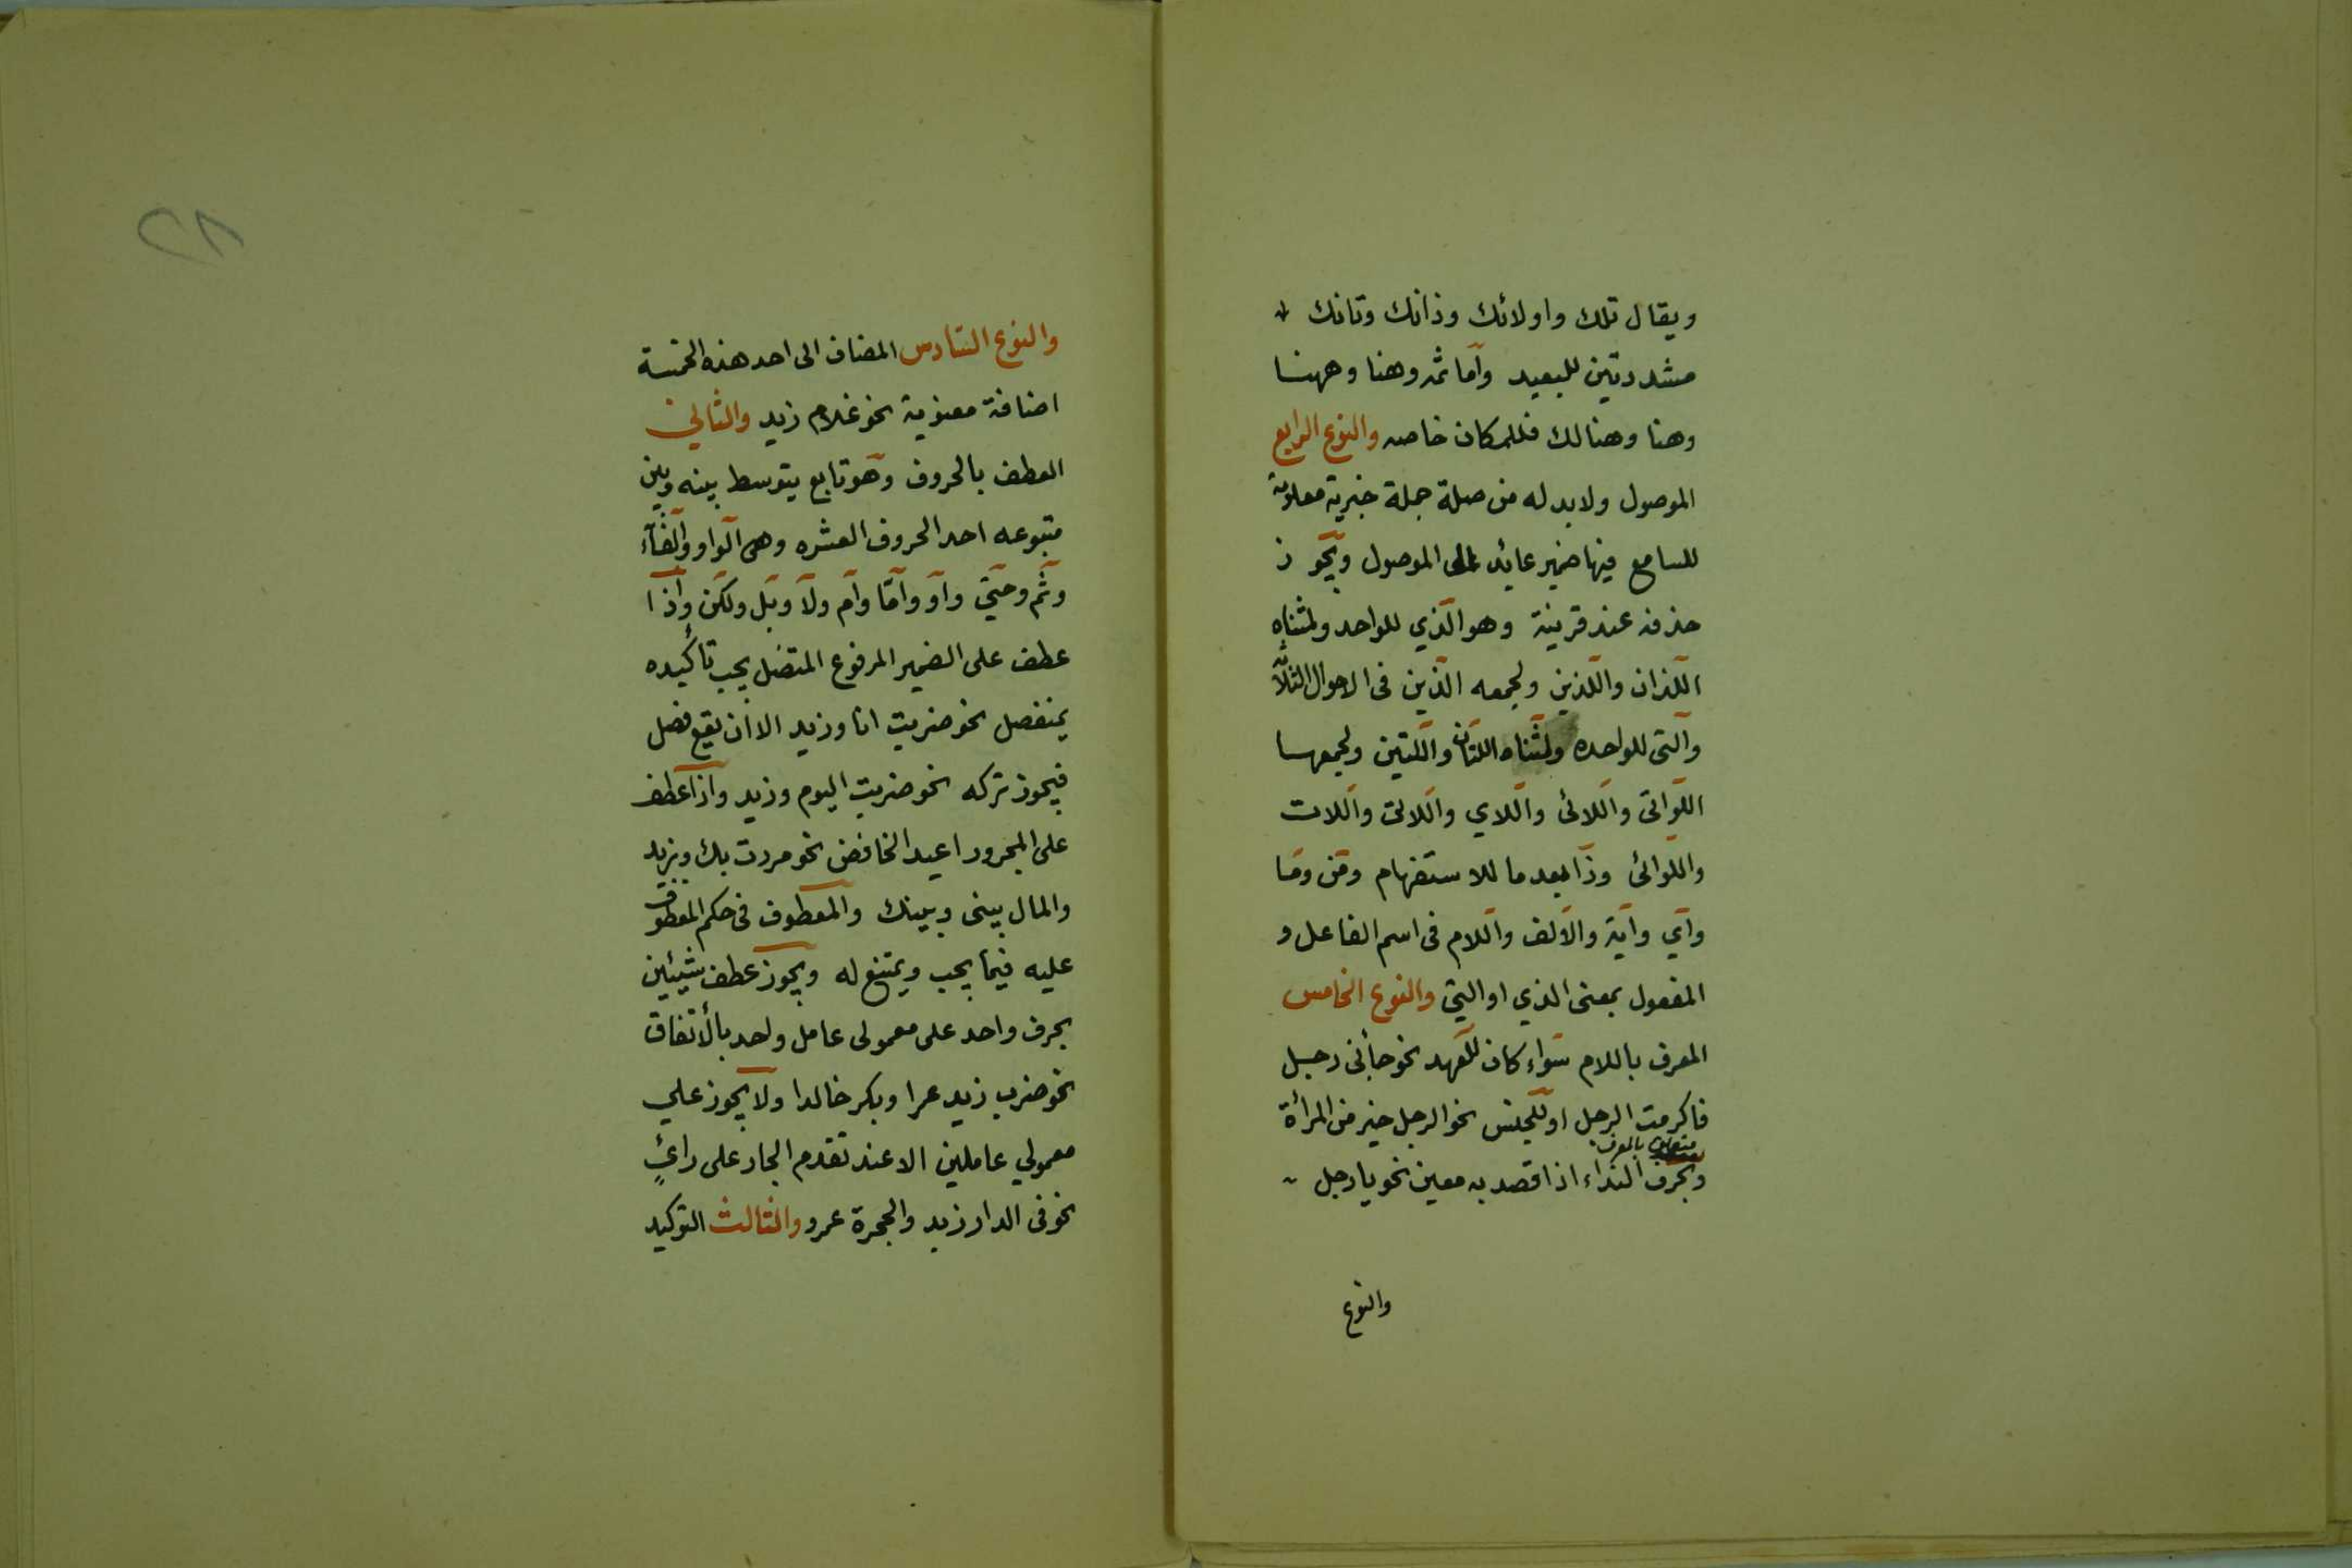 ويقال تلك واولائك وذانك وتانك
مشددتين للبعيد واما ثمه وهنا وههنا
وهنا وهنالك فللمكان خاصه والنوع الرابع
الموصول ولا بد له من صلة جملة خبرية معلومة
للسامع فيها ضمير عائد الى الموصول ويجوز
حذفه عند قرينة وهو الذي للواحد ولمثناه
اللذان واللذين ولجمعه الذين فى الاحوال الثلاث
والتى للواحده ولمثناه اللتان واللتين ولجمعها
اللواتى واللائى واللاي واللاتى واللات
واللوائى وذا بعد ما للاستفهام ومن وما
وآي واية والالف واللام فى اسم الفاعل و
المفعول بمعنى الذي او التي والنوع الخامس
المعرف باللام سواء كان للعهد نحو جأنى رجل
فاكرمت الرجل او للجنس نحو الرجل خير من المرأة
متعلق بالمعرف
وبحرف النداء اذا قصد به معين نحو يا رجل
والنوع
٢٨
والنوع السادس المضاف الى احد هذه الخمسة
اضافة معنوية نحو غلام زيد والثاني
العطف بالحروف وهو تابع يتوسط بينه وبين
متبوعه احد الحروف العشره وهى الواو والفآء
وثم وحتى وأو وامّا وام ولا وبل ولكن واذا
عطف على الضمير المرفوع المتصل يجب تأكيده
بمنفصل نحو ضربت انا وزيد الا ان يقع فصل
فيجوز تركه نحو ضربت اليوم وزيد واذا عطف
على المجرور اعيد الخافض نحو مررت بك وبزيد
والمال بينى وبينك والمعطوف فى حكم المعطوف
عليه فيما يجب ويمتنع له ويجوز عطف شيئين
بحرف واحد على معمولى عامل واحد بالأتفاق
نحو ضرب زيد عمرا وبكر خالدا ولا يجوز علي
معمولي عاملين الا عند تقدم الجار على رائٍ
نحو فى الدار زيد والحجرة عمرو والثالث التوكيد